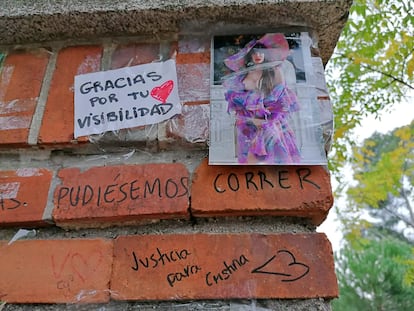 GRACIAS
POR TU
VISIBILITAD
PUDIÉSEMOS CORRER
Justicia
para Cristina <3